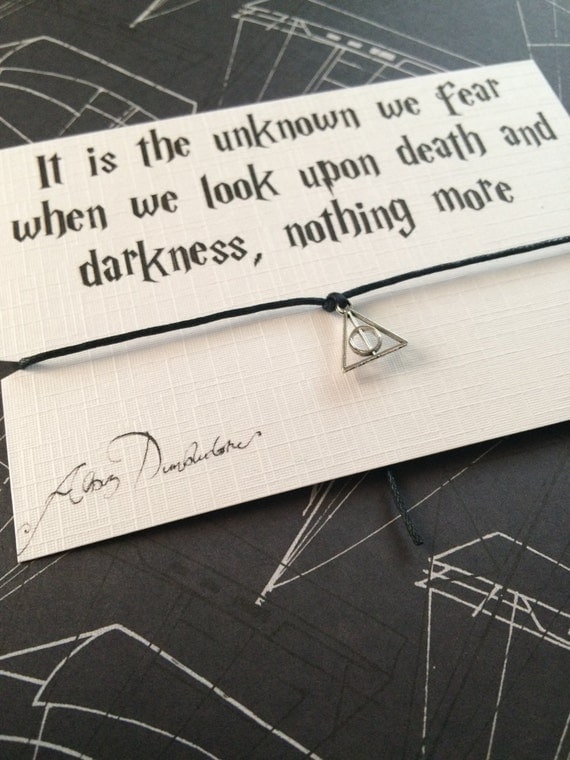 It is the unknown we fear
when we look upon death and
darkness, nothing more
Albus Dumbledore